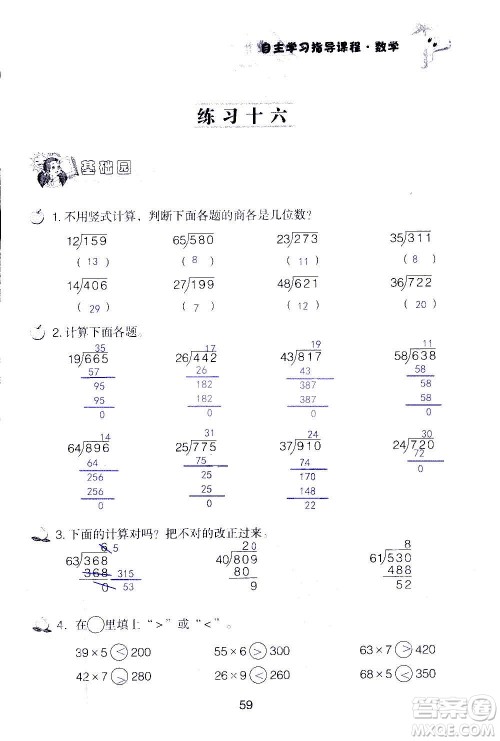 自主学习指导课程·数学
练习十六
基础园
1. 不用竖式计算，判断下面各题的商各是几位数？
12)159 65)580 23)273 35)311
( 13 ) ( 8 ) ( 11 ) ( 8 )
14)406 27)199 48)621 36)722
( 29 ) ( 7 ) ( 12 ) ( 20 )
2. 计算下面各题。
35 17 19 11
19)665 26)442 43)817 58)638
57 26 43 58
95 182 387 58
95 182 387 58
0 0 0 0
14 31 24 30
64)896 25)775 37)910 24)720
64 75 74 72
256 25 170 0
256 25 148
0 0 22
3. 下面的计算对吗？把不对的改正过来。
6 5 20 8
63)368 40)809 61)530
368 315 80 488
0 53 9 52
4. 在○里填上“>”或“<”。
39×5<200 55×6>300 63×7>420
42×7>280 26×9<260 68×5<350
59
答案圈
MXQE.COM